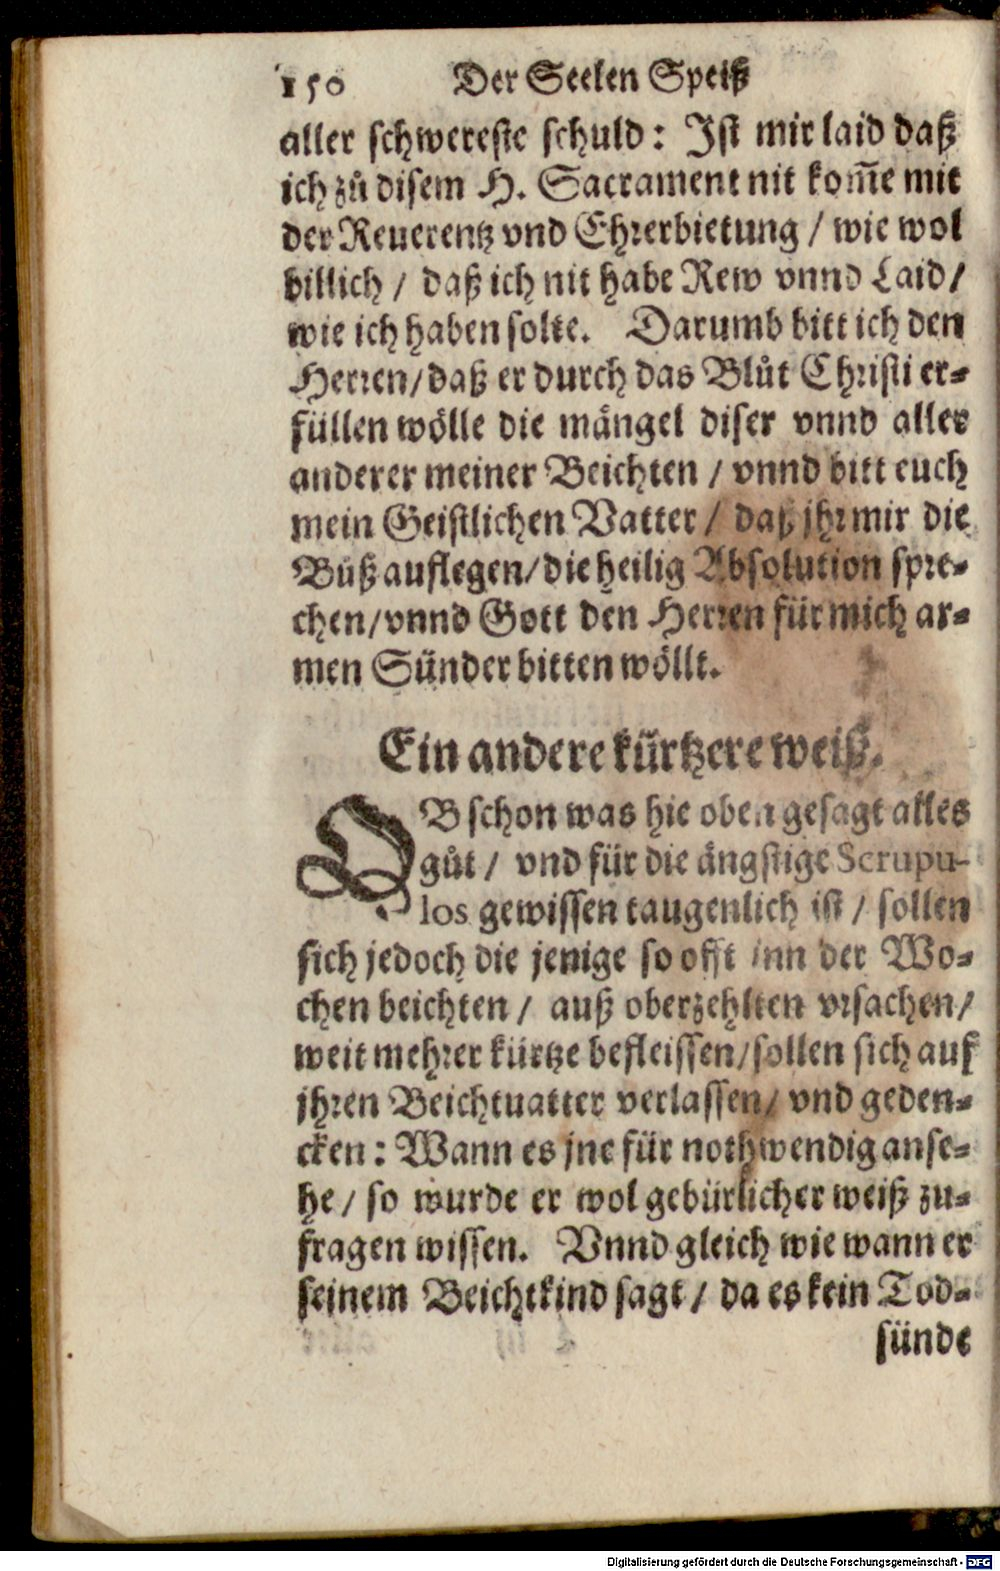 150 Der Seelen Speiß
aller schwereste schuld: Ist mir laid daß
ich zů disem H. Sacrament nit kom̄e mit
der Reuerentz vnd Ehrerbietung / wie wol
billich / daß ich nit habe Rew vnnd Laid /
wie ich haben solte. Darumb bitt ich den
Herren / daß er durch das Blůt Christi er-
füllen wölle die mängel diser vnnd aller
anderer meiner Beichten / vnnd bitt euch
mein Geistlichen Vatter / daß jhr mir die
Bůß auflegen / die heilig Absolution spre-
chen / vnnd Gott den Herren für mich ar-
men Sünder bitten wöllt.
Ein andere kürtzere weiß.
OB schon was hie oben gesagt alles
gůt / vnd für die ängstige Scrupu-
los gewissen taugenlich ist / sollen
sich jedoch die jenige so offt inn der Wo-
chen beichten / auß oberzehlten vrsachen /
weit mehrer kürtze befleissen / sollen sich auf
jhren Beichtuatter verlassen / vnd geden-
cken: Wann es jne für nothwendig anse-
he / so wurde er wol gebürlicher weiß zu-
fragen wissen. Vnnd gleich wie wann er
seinem Beichtkind sagt / da es kein Tod-
sünde
Digitalisierung gefördert durch die Deutsche Forschungsgemeinschaft - DFG